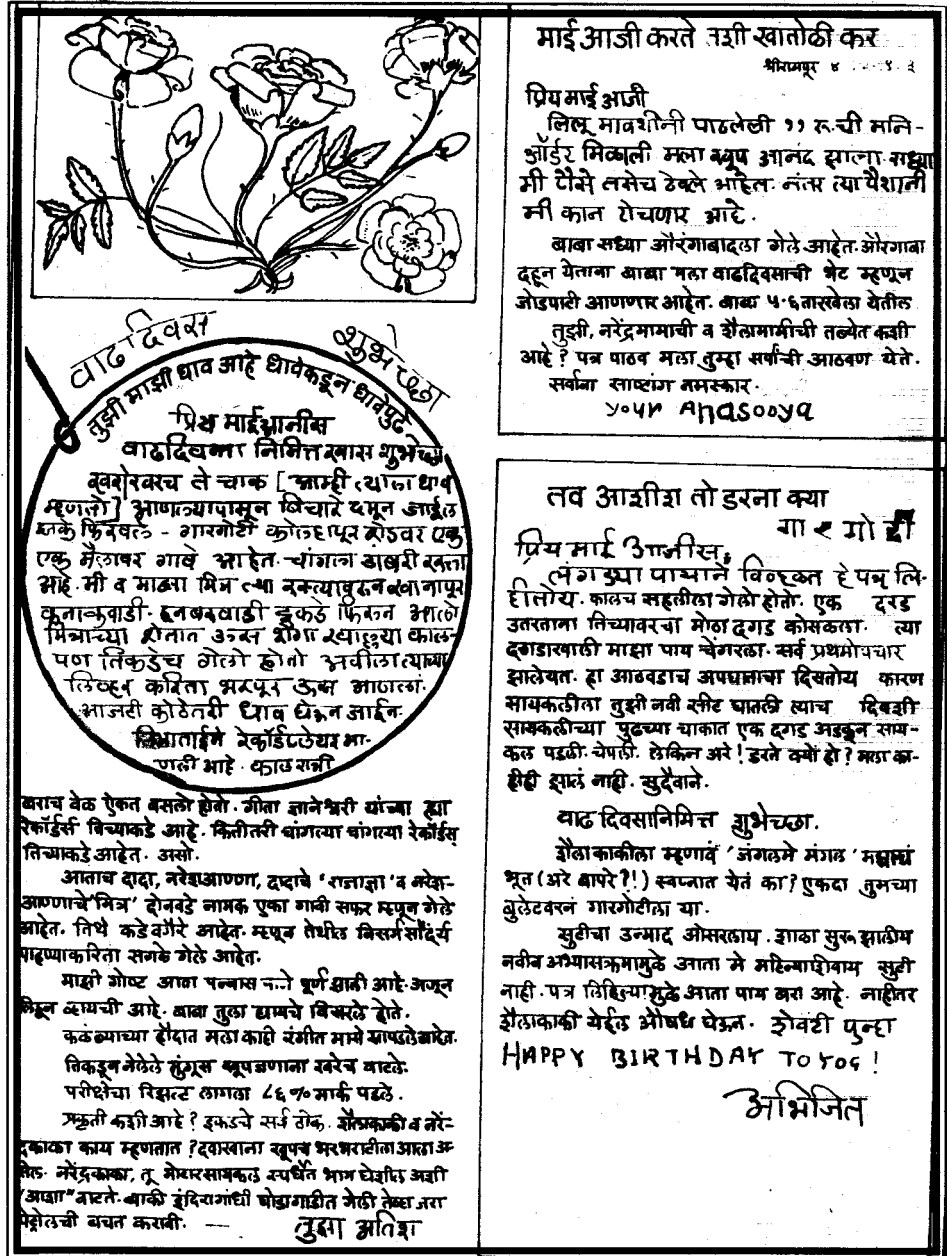 वाढदिवस शुभेच्छा
तुझी माझी धाव आहे धावेकडून धावेपुढे
प्रिय माईआजीस
वाढदिवसा निमित्त खास शुभेच्छा
खरोखरच ते चाक [आम्ही त्याला धाव
म्हणतो] आणल्यापासून विचारे दमून जाईल
इतके फिरवले - गारगोटी कोल्हापूर रोडवर एक
एक मैलावर गावे आहेत. चांगला डांबरी रस्ता
आहे. मी व माझा मित्र त्या रस्त्यावरून खानापूर
कुनाळवाडी. इकडे फिरून आलो
मित्राच्या शेतात ऊस शेंगा खाल्ल्या काल-
पण तिकडेच गेलो होतो अवीला त्याच्या
लिव्हर करिता भरपूर ऊस आणला.
आजही कोठेतरी धाव घेऊन जाईन.
विभाताईने रेकॉर्डप्लेयर आ-
णली आहे. काल रात्री
बराच वेळ ऐकत बसलो होतो. गीता ज्ञानेश्वरी यांच्या ह्या
रेकॉर्डर्स तिच्याकडे आहे. कितीतरी चांगल्या चांगल्या रेकॉर्डस्
तिच्याकडे आहेत. असो.
आताच दादा, नरेशआण्णा, दादाचे 'राजाज्ञा' व नरेश-
आण्णाचे 'मित्र' दोनवडे नामक एका गावी सफर म्हणून गेले
आहेत. तिथे कडे वगैरे आहेत. म्हणून तेथील निसर्ग सौंदर्य
पाहण्याकरिता सगळे गेले आहेत.
माझी गोष्ट आता पन्नास पूर्ण झाली आहे. अजून
लिहून व्हायची आहे. बाबा तुला द्यायचे विसरले होते.
कळंब्याच्या हौदात मला काही रंगीत मासे सापडले आहेत.
तिकडून नेलेले मुंगूस खूपजणांना खरेच वाटले.
परीक्षेचा रिझल्ट लागला ८६% मार्क पडले.
प्रकृती कशी आहे? इकडचे सर्व ठीक. शैलाकाकी व नरें-
द्रकाका काय म्हणतात? दवाखाना खूपच भरभराटीला आला अ-
सेल. नरेंद्रकाका, तू मोटारसायकल स्पर्धेत भाग घेशील अशी
"आशा" वाटते. बाकी इंदिरागांधी घोडागाडीत गेली तेव्हा जरा
पेट्रोलची बचत करावी. —
तुझा अतिश
माई आजी करते तशी खातोळी कर
श्रीरामपूर ४
प्रिय माई आजी
लिलू मावशीनी पाठलेली ११ रु.ची मनि-
ऑर्डर मिळाली मला खूप आनंद झाला. सध्या
मी पैसे तसेच ठेवले आहेत. नंतर त्या पैशानी
मी कान टोचणार आहे.
बाबा सध्या औरंगाबादला गेले आहेत. औरंगाबा
दहून येताना बाबा मला वाढदिवसाची भेट म्हणून
जोडपाटी आणणार आहेत. बाबा ५-६ तारखेला येतील
तुझी, नरेंद्रमामाची व शैलामामीची तब्येत कशी
आहे? पत्र पाठव मला तुम्हा सर्वांची आठवण येते.
सर्वांना साष्टांग नमस्कार.
your Anasooya
तव आशीश तो डरना क्या
गारगोटी
प्रिय माई आजीस,
लंगड्या पायाने विव्हळत हे पत्र लि-
हीतोय. कालच सहलीला गेलो होतो. एक दरड
उतरताना तिच्यावरचा मोठा दगड कोसळला. त्या
दगडाखाली माझा पाय चेंगरला. सर्व प्रथमोपचार
झालेयत. हा आठवडाच अपघाताचा दिसतोय कारण
सायकलीला तुझी नवी सीट घातली त्याच दिवशी
सायकलीच्या पुढच्या चाकात एक दगड अडकून साय-
कल पडली. चेपली. लेकिन अरे! डरते क्यों हो? मला का-
हीही झालं नाही. सुदैवाने.
वाढदिवसानिमित्त शुभेच्छा.
शैलाकाकीला म्हणावं 'जंगलमे मंगल' मधलं
भूत (अरे बापरे?!) स्वप्नात येतं का? एकदा तुमच्या
बुलेटवरनं गारगोटीला या.
सुटीचा उन्माद ओसरलाय. शाळा सुरू झालीय
नवीन अभ्यासक्रमामुळे आता मे महिन्याशिवाय सुटी
नाही. पत्र लिहिल्यामुळे आता पाय बरा आहे. नाहीतर
शैलाकाकी येईल औषध घेऊन. शेवटी पुन्हा
HAPPY BIRTHDAY TO YOU!
अभिजित